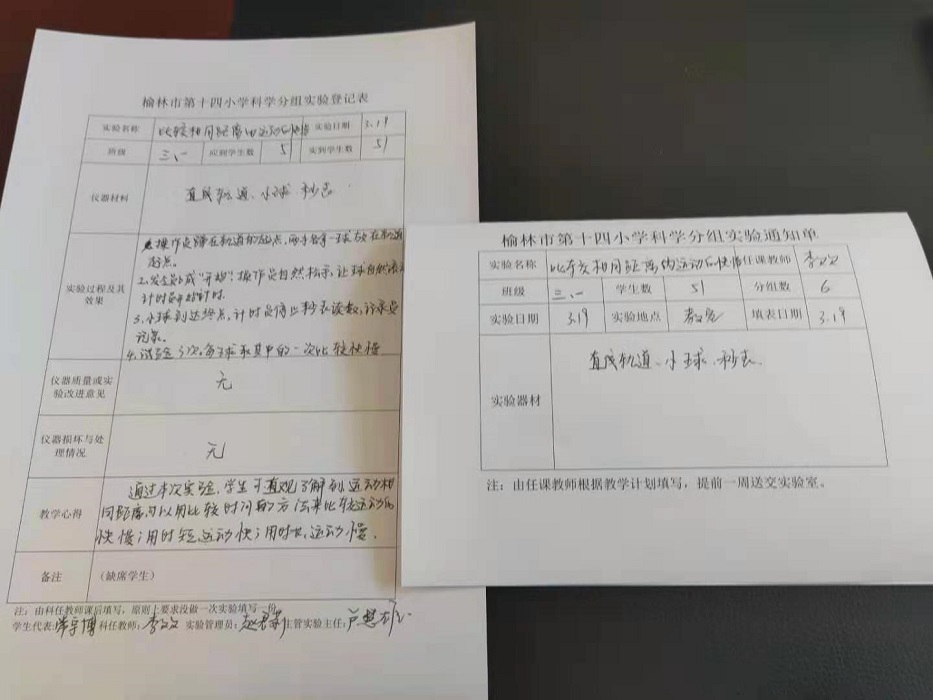 榆林市第十四小学科学分组实验登记表
实验名称 比较相同距离的运动的快慢 实验日期 3.19
班级 三、一 应到学生数 51 实到学生数 51
仪器材料 直线轨道、小球、秒表
实验过程及其效果
1.操作员蹲在轨道的起点,两手各拿一球放在轨道
起点。
2.发令员喊"开始",操作员自然松手,让球自然滚动
计时员开始计时.
3.小球到达终点,计时员停止秒表读数,记录员
记录。
4.试验3次,每球取其中的一次比较快慢
仪器质量或实验改进意见 无
仪器损坏与处理情况 无
教学心得
通过本次实验,学生可直观了解到运动相
同距离,可以用比较时间的方法来比较运动的
快慢;用时短,运动快;用时长,运动慢.
备注 (缺席学生)
注:由科任教师课后填写,原则上要求没做一次实验填写一份
学生代表: 科任教师:李文文 实验管理员: 主管实验主任:
榆林市第十四小学科学分组实验通知单
实验名称 比较相同距离的运动的快慢 任课教师 李文文
班级 三、一 学生数 51 分组数 6
实验日期 3.19 实验地点 教室 填表日期 3.19
实验器材 直线轨道、小球、秒表.
注:由任课教师根据教学计划填写,提前一周送交实验室。